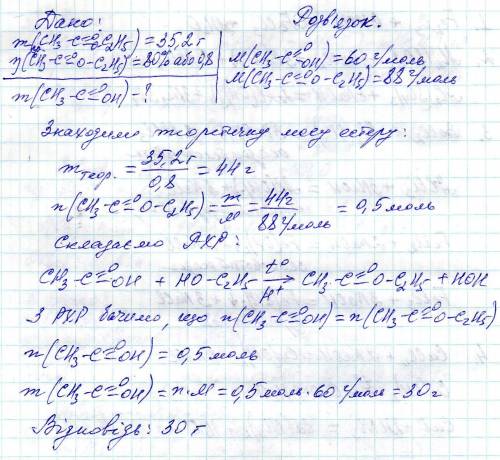 Дано: Розв'язок.
m(CH₃-C=O-O-C₂H₅) = 35,2 г
η(CH₃-C=O-O-C₂H₅) = 80% або 0,8
m(CH₃-C=O-OH) - ?
M(CH₃-C=O-OH) = 60 г/моль
M(CH₃-C=O-O-C₂H₅) = 88 г/моль
Знаходимо теоретичну масу естеру:
m теор. = 35,2 г / 0,8 = 44 г
n(CH₃-C=O-O-C₂H₅) = m/M = 44г / 88 г/моль = 0,5 моль
Складаємо РХР:
CH₃-C=O-OH + HO-C₂H₅ →(t°, H⁺) CH₃-C=O-O-C₂H₅ + HOH
З РХР бачимо, що n(CH₃-C=O-OH) = n(CH₃-C=O-O-C₂H₅)
n(CH₃-C=O-OH) = 0,5 моль
m(CH₃-C=O-OH) = n·M = 0,5 моль · 60 г/моль = 30 г
Відповідь: 30 г